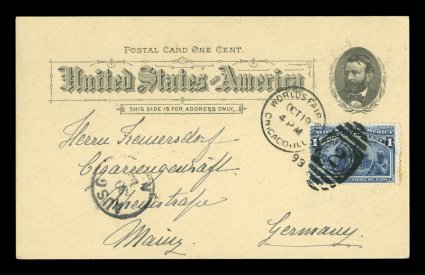 POSTAL CARD ONE CENT.
United States of America
THIS SIDE IS FOR ADDRESS ONLY.
WORLD'S FAIR
OCT 19
4 PM
CHICAGO, ILL.
93
1 1
Herrn
Cigarrengeschäft
Mainz
Germany.